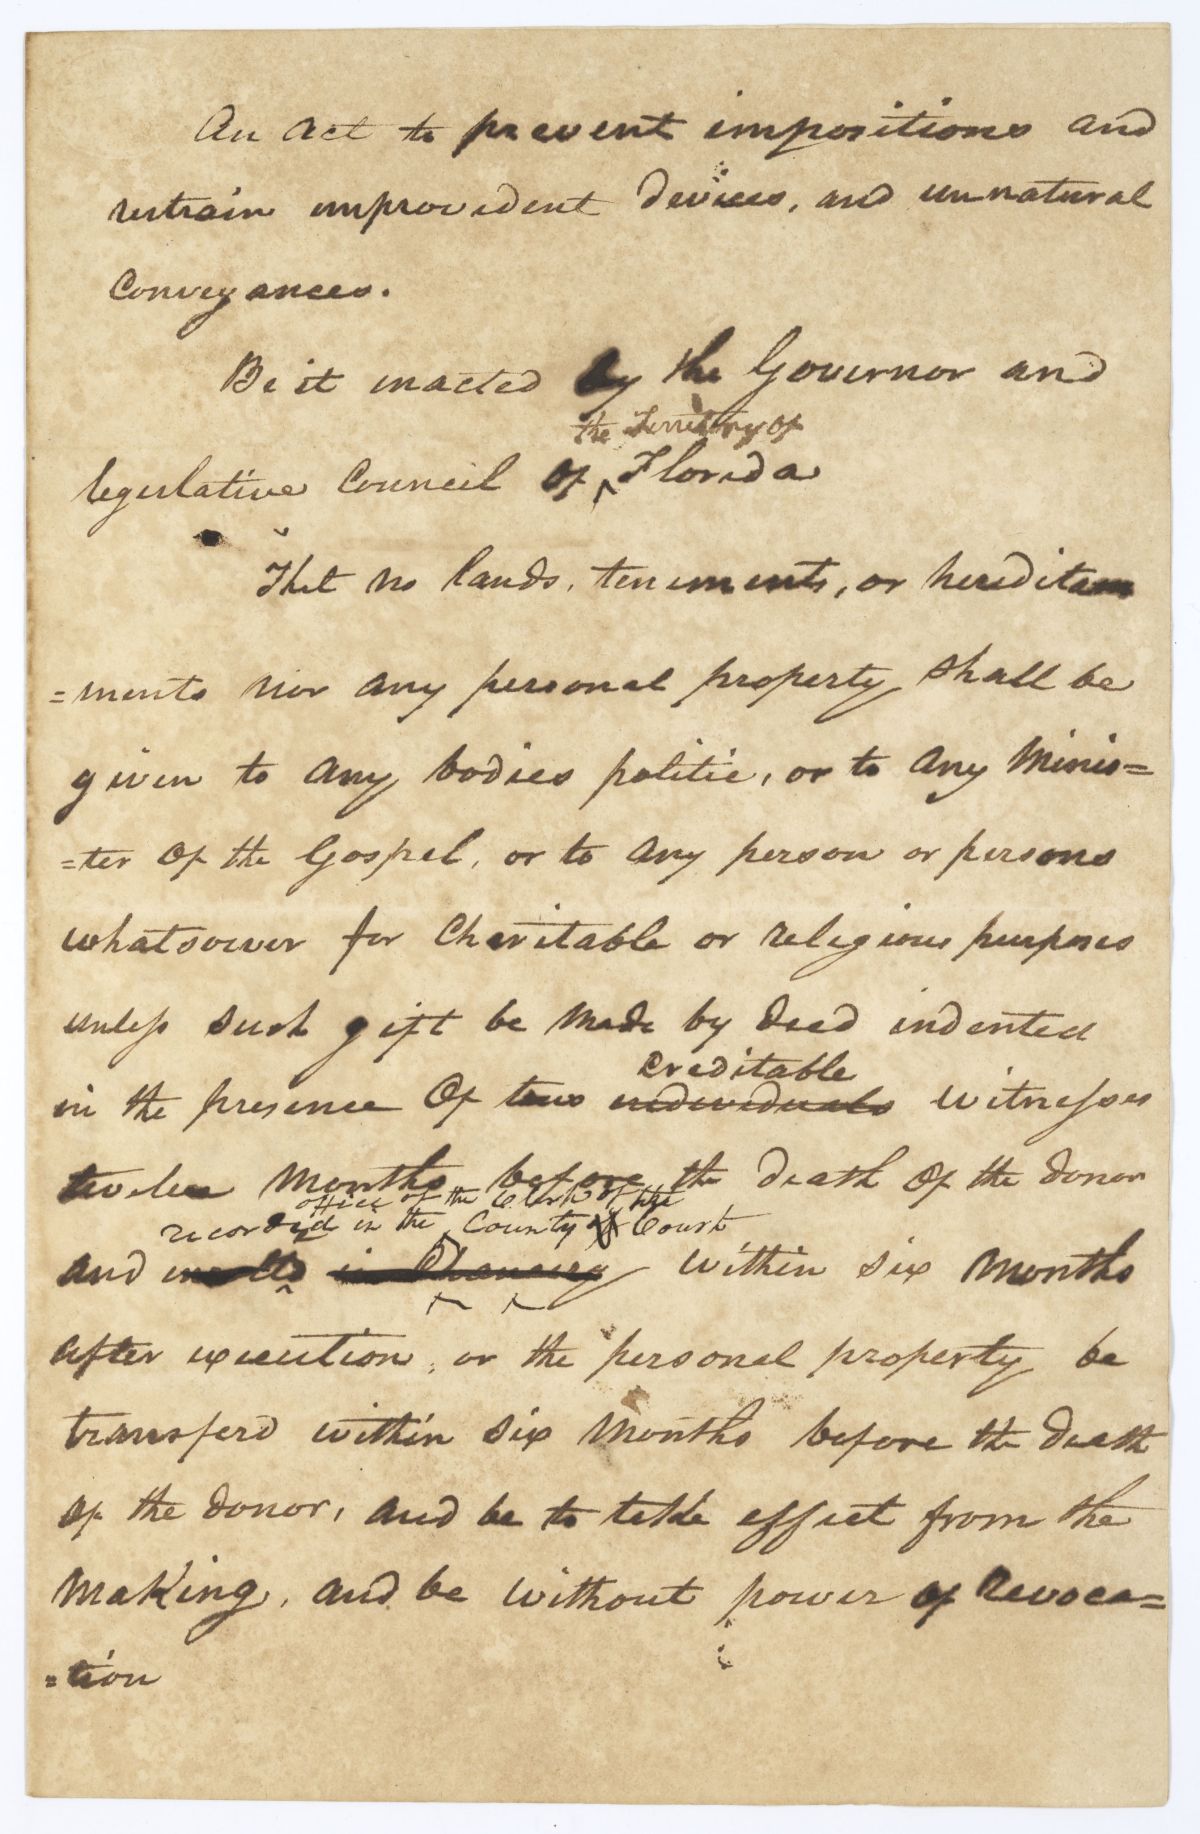 An Act to prevent impositions and
restrain improvident devices, and unnatural
Conveyances.
Be it enacted by the Governor and
the Territory of
legislative Council of ^ Florida
That no lands, tenements, or heredita
=ments nor any personal property shall be
given to any bodies politic, or to any Minis=
=ter of the Gospel, or to any person or persons
whatsoever for Charitable or religious purposes
unless such gift be made by deed indented
creditable
in the presence of two individuals witnesses
twelve months before the death of the donor
office of the Clerk of the
recorded in the County Court
and in Chancery within six months
after execution, or the personal property be
transferd within six months before the death
of the donor, and be to take effect from the
making, and be without power of revoca=
=tion